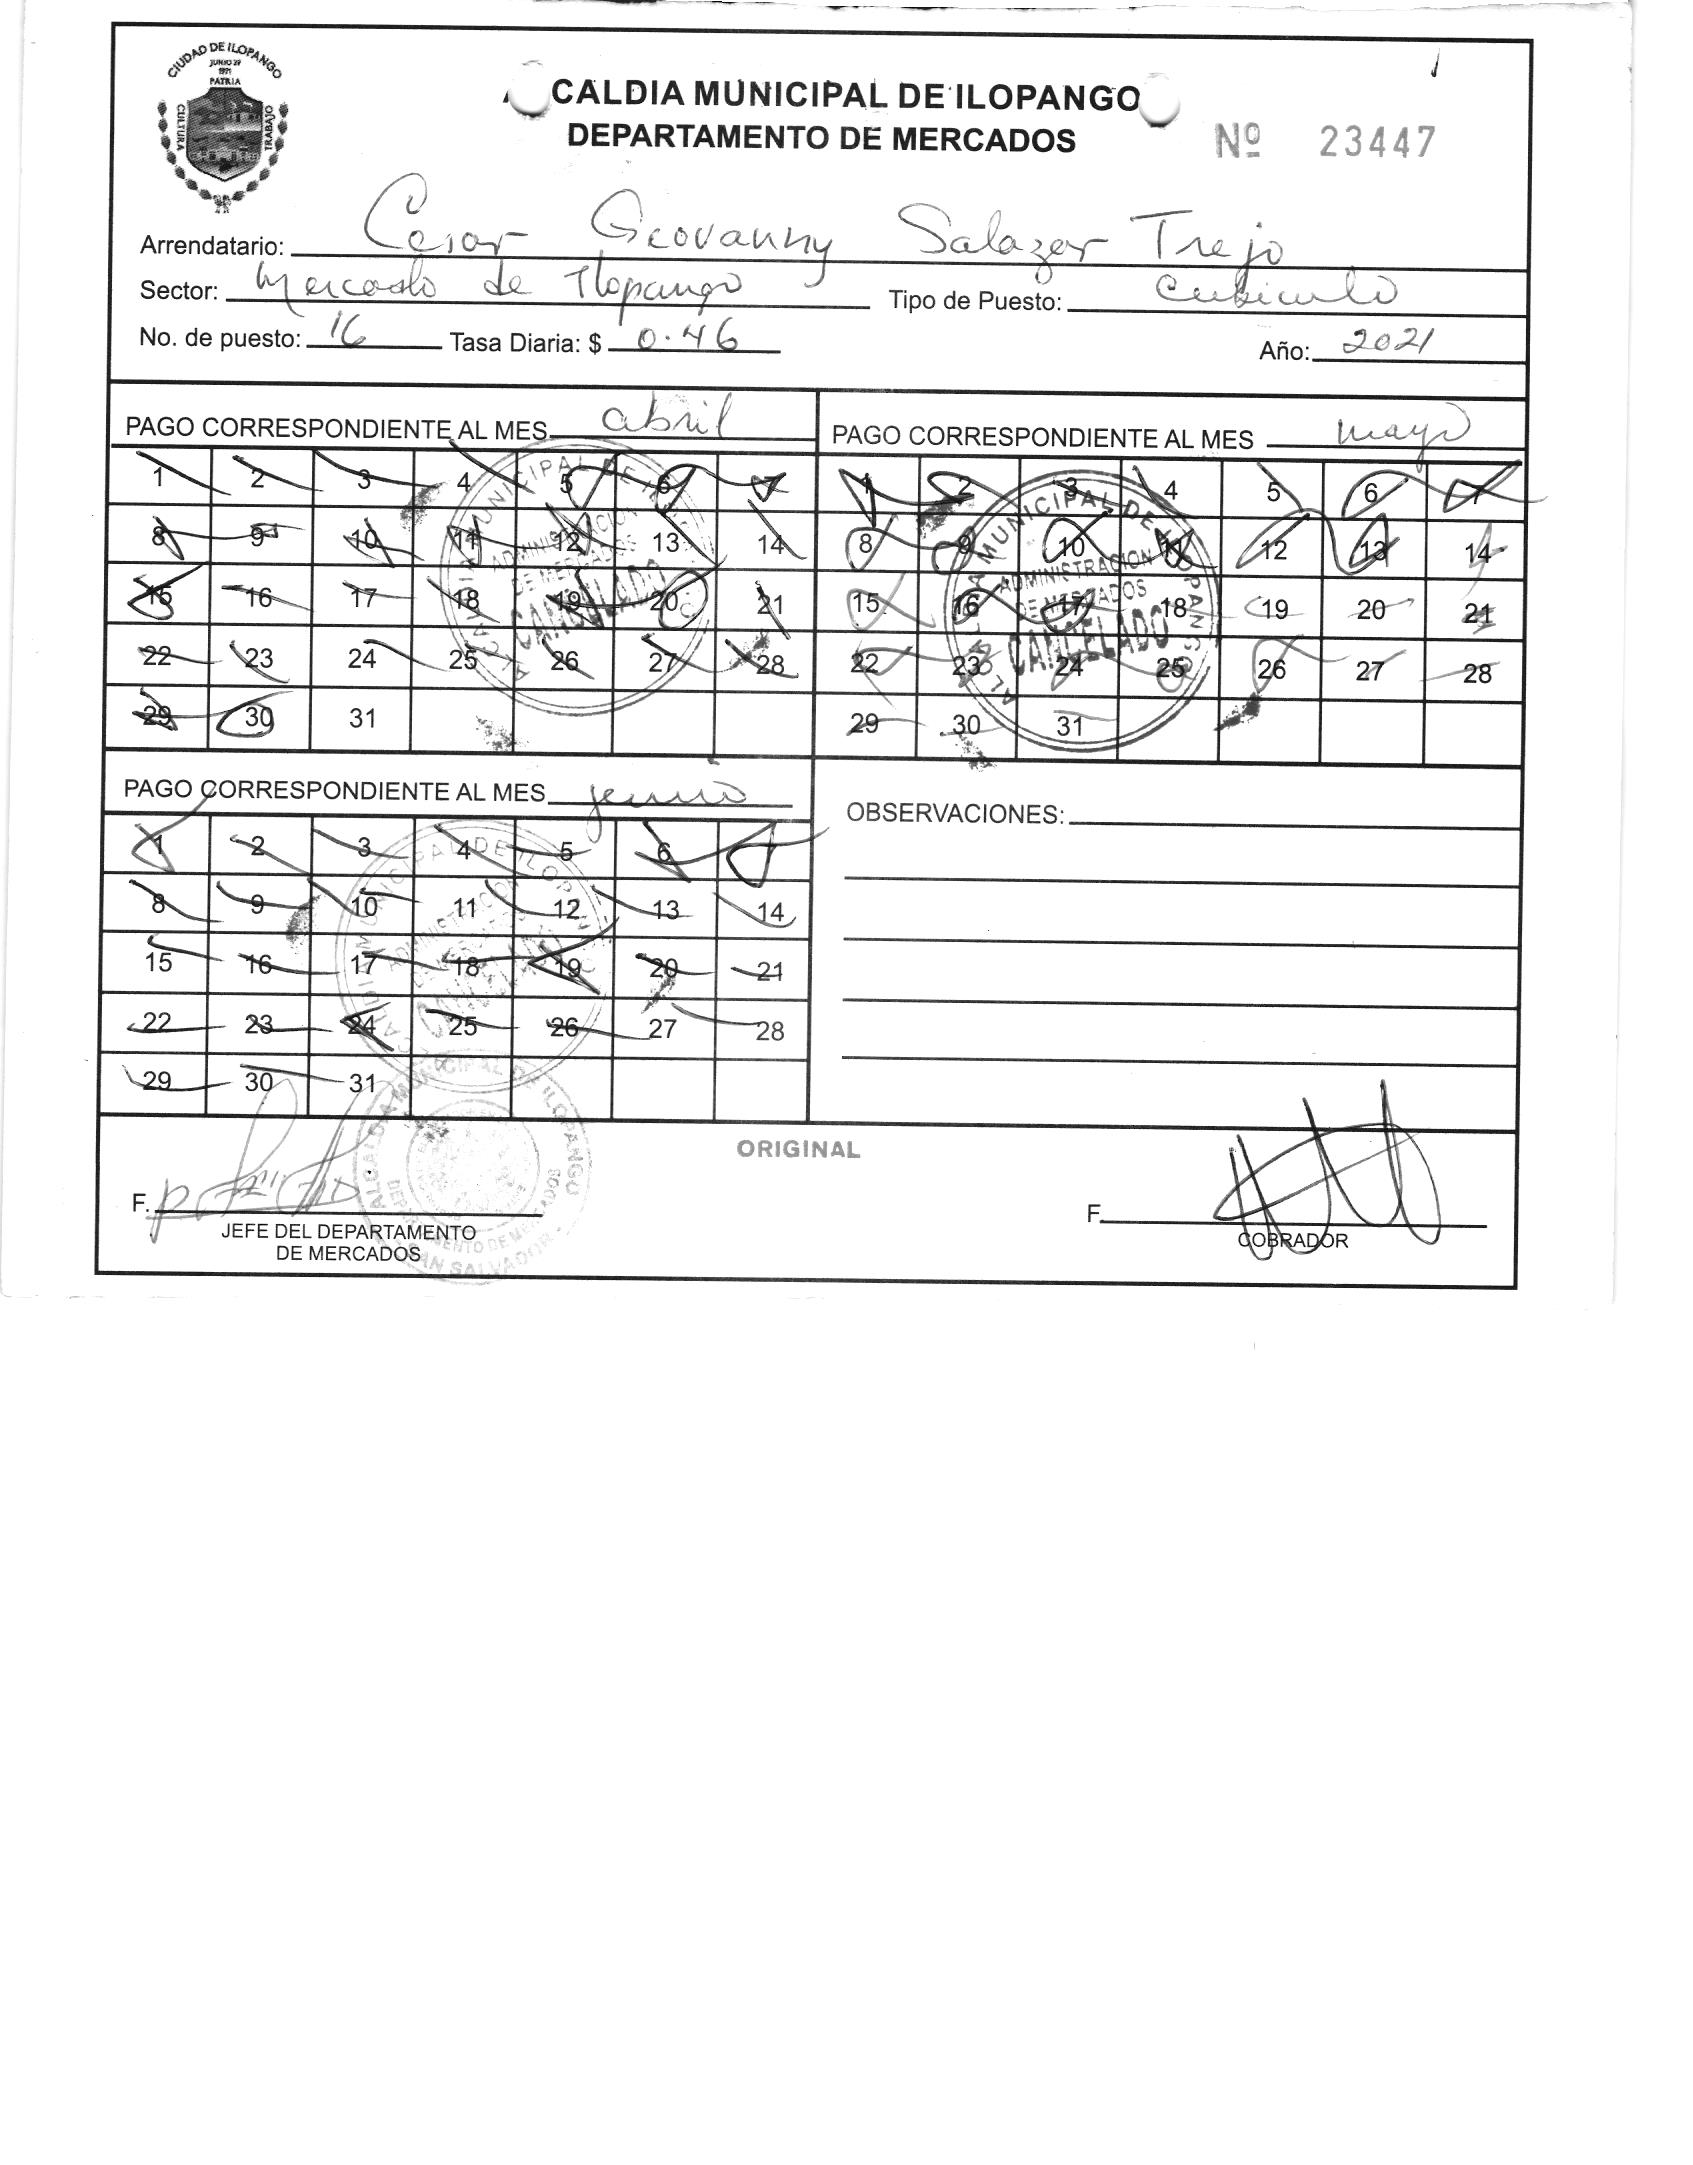 CIUDAD DE ILOPANGO
JUNIO 29
1971
PATRIA
CULTURA
TRABAJO
CALDIA MUNICIPAL DE ILOPANGO
DEPARTAMENTO DE MERCADOS
Nº 23447
Arrendatario: Cesar Geovanny Salazar Trejo
Sector: Mercado de Ilopango Tipo de Puesto: Cubiculo
No. de puesto: 16 Tasa Diaria: $ 0.46 Año: 2021
PAGO CORRESPONDIENTE AL MES abril
1 2 3 4 5 6 7
8 9 10 11 12 13 14
15 16 17 18 19 20 21
22 23 24 25 26 27 28
29 30 31
ALCALDIA MUNICIPAL DE ILOPANGO
ADMINISTRACION
DE MERCADOS
CANCELADO
PAGO CORRESPONDIENTE AL MES mayo
1 2 3 4 5 6 7
8 9 10 11 12 13 14
15 16 17 18 19 20 21
22 23 24 25 26 27 28
29 30 31
ALCALDIA MUNICIPAL DE ILOPANGO
ADMINISTRACION
DE MERCADOS
CANCELADO
PAGO CORRESPONDIENTE AL MES junio
1 2 3 4 5 6 7
8 9 10 11 12 13 14
15 16 17 18 19 20 21
22 23 24 25 26 27 28
29 30 31
ALCALDIA MUNICIPAL DE ILOPANGO
ADMINISTRACION
OBSERVACIONES:
ORIGINAL
F.
JEFE DEL DEPARTAMENTO
DE MERCADOS
ALCALDIA MUNICIPAL DE ILOPANGO
DEPARTAMENTO DE MERCADOS
SAN SALVADOR
F.
COBRADOR